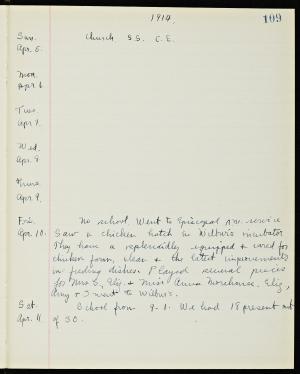 1914.
109
Sun. Apr. 5. Church S.S. C.E.
Mon. Apr. 6
Tues. Apr. 7.
Wed. Apr. 8
Thurs. Apr. 9.
Fri. No school. Went to Episcopal service
Apr. 10. Saw a chicken hatch in Wilbur's incubator
They have a splendidly equipped & cared for
chicken farm, clean & the latest improvements
in feeding dishes. Played several pieces
for Mrs. Ely & Miss Anna Morehouse. Eliz,
Amy & I went to Wilbur's.
Sat. School from 9-1. We had 18 present out
Apr. 11 of 30.